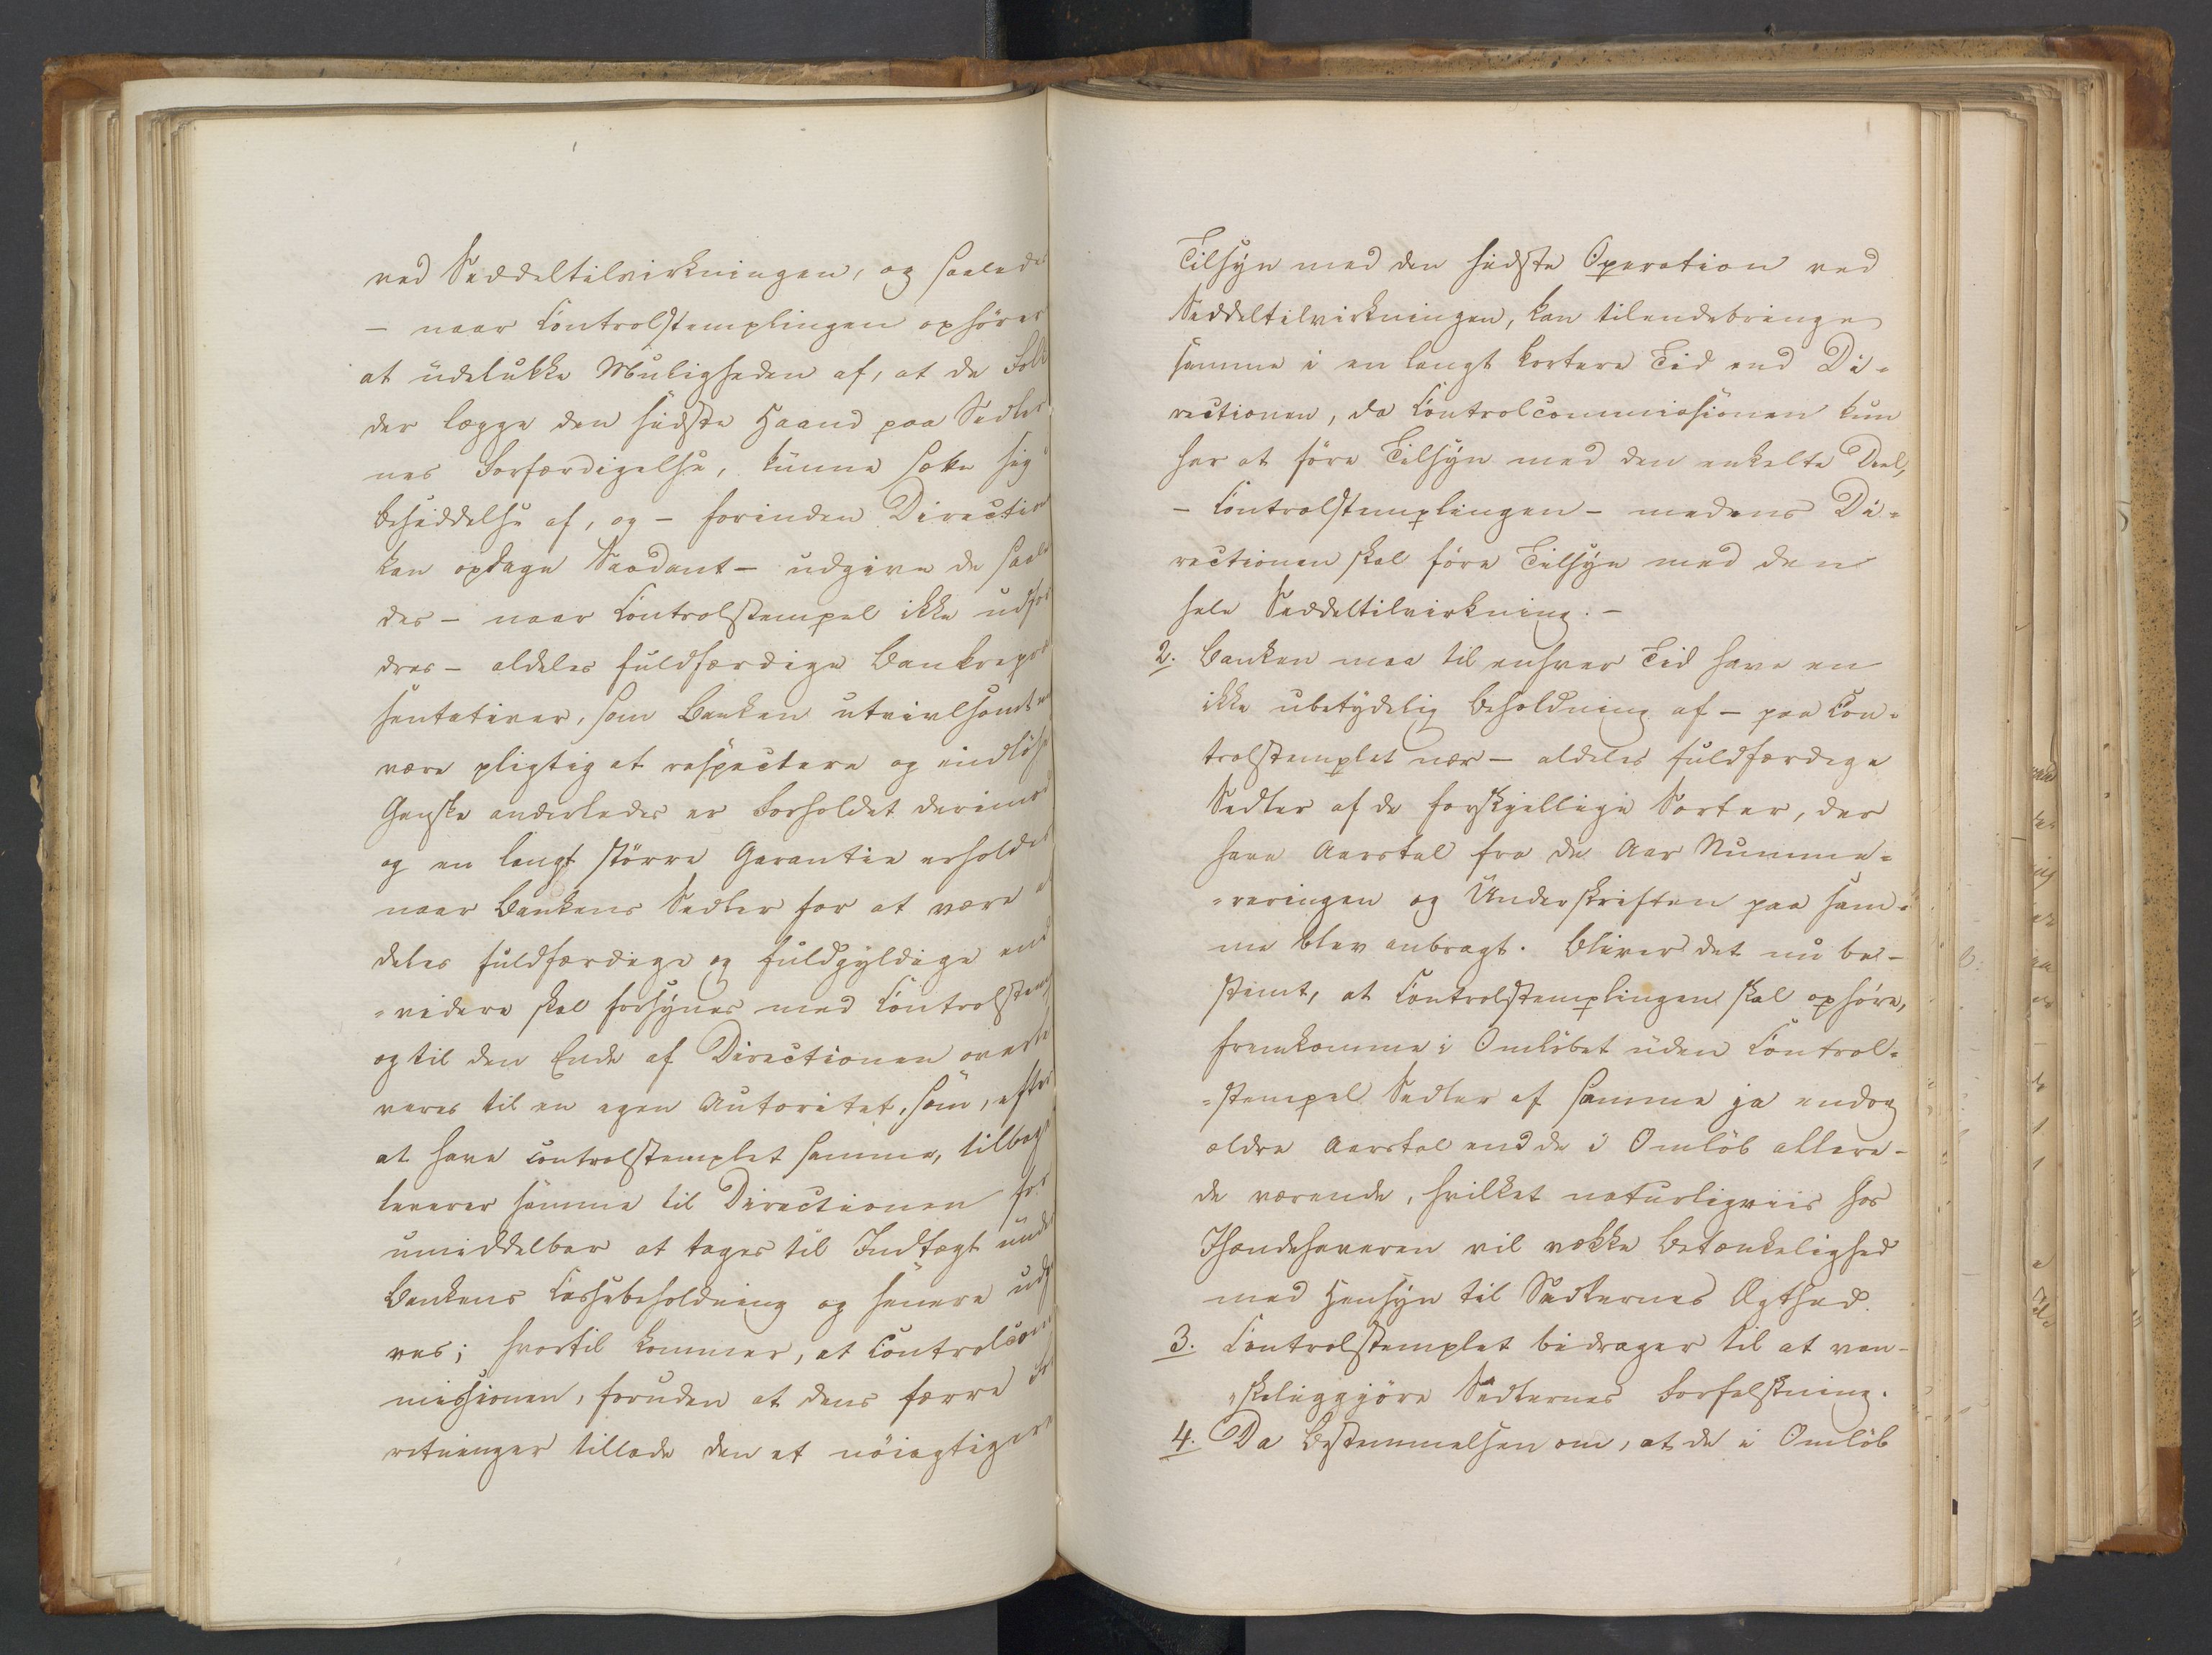 ved Seddeltilvirkningen, og saaledes
— naar Controlstemplingen ophører
at udelukke Muligheden af, at de Folk
der lægge den sidste Haand paa Sedler
nes Forfærdigelse, kunne sætte sig i
Besiddelse af, og — forinden Direction
kan opdage Saadant — udgive de saale
des — naar Controlstempel ikke udfor
dres — aldeles fuldfærdige Bankrepræ
sentativer, som Banken utvivlsomt
være pligtig at respectere og indløse
Ganske anderledes er Forholdet derimod
og en langt større Garantie erholdes
naar Bankens Sedler for at være al
deles fuldfærdige og fuldgyldige end
-videre skal forsynes med Controlstemp
og til den Ende af Directionen overle
veres til en egen Autoritet, som, efter
at have controlstemplet samme, tilbage
leverer samme til Directionen for
umiddelbar at tages til Indtægt under
Bankens Cassebeholdning og senere udgi
ves; hvortil kommer, at Controlcom
missionen, foruden at dens færre For
retninger tillade den et nöiagtigere
Tilsyn med den sidste Operation ved
Seddeltilvirkningen, kan tilendebringe
samme i en langt kortere Tid end Di-
rectionen, da Controlcommissionen kun
har at före Tilsyn med den enkelte Deel,
— Controlstemplingen — medens Di-
rectionen skal före Tilsyn med den
hele Seddeltilvirkning. —
2. Banken maa til enhver Tid have en
ikke ubetydelig Beholdning af — paa Con-
trolstemplet nær — aldeles fuldfærdige
Sedler af de forskjellige Sorter, der
have Aarstal fra de Aar Numme-
-reringen og Underskriften paa sam-
me blev anbragt. Bliver det nu be-
stemt, at Controlstemplingen skal ophöre,
fremkomme i Omløbet uden Control-
-stempel Sedler af samme ja endog
ældre Aarstal end de i Omlöb allere-
de værende, hvilket naturligviis hos
Ihændehaveren vil vække Betænkelighed
med Hensyn til Sedlernes Ægthed.
3. Controlstemplet bidrager til at van-
-skeliggjöre Sedlernes Forfalskning.
4. Da Bestemmelsen om, at de i Omlöb